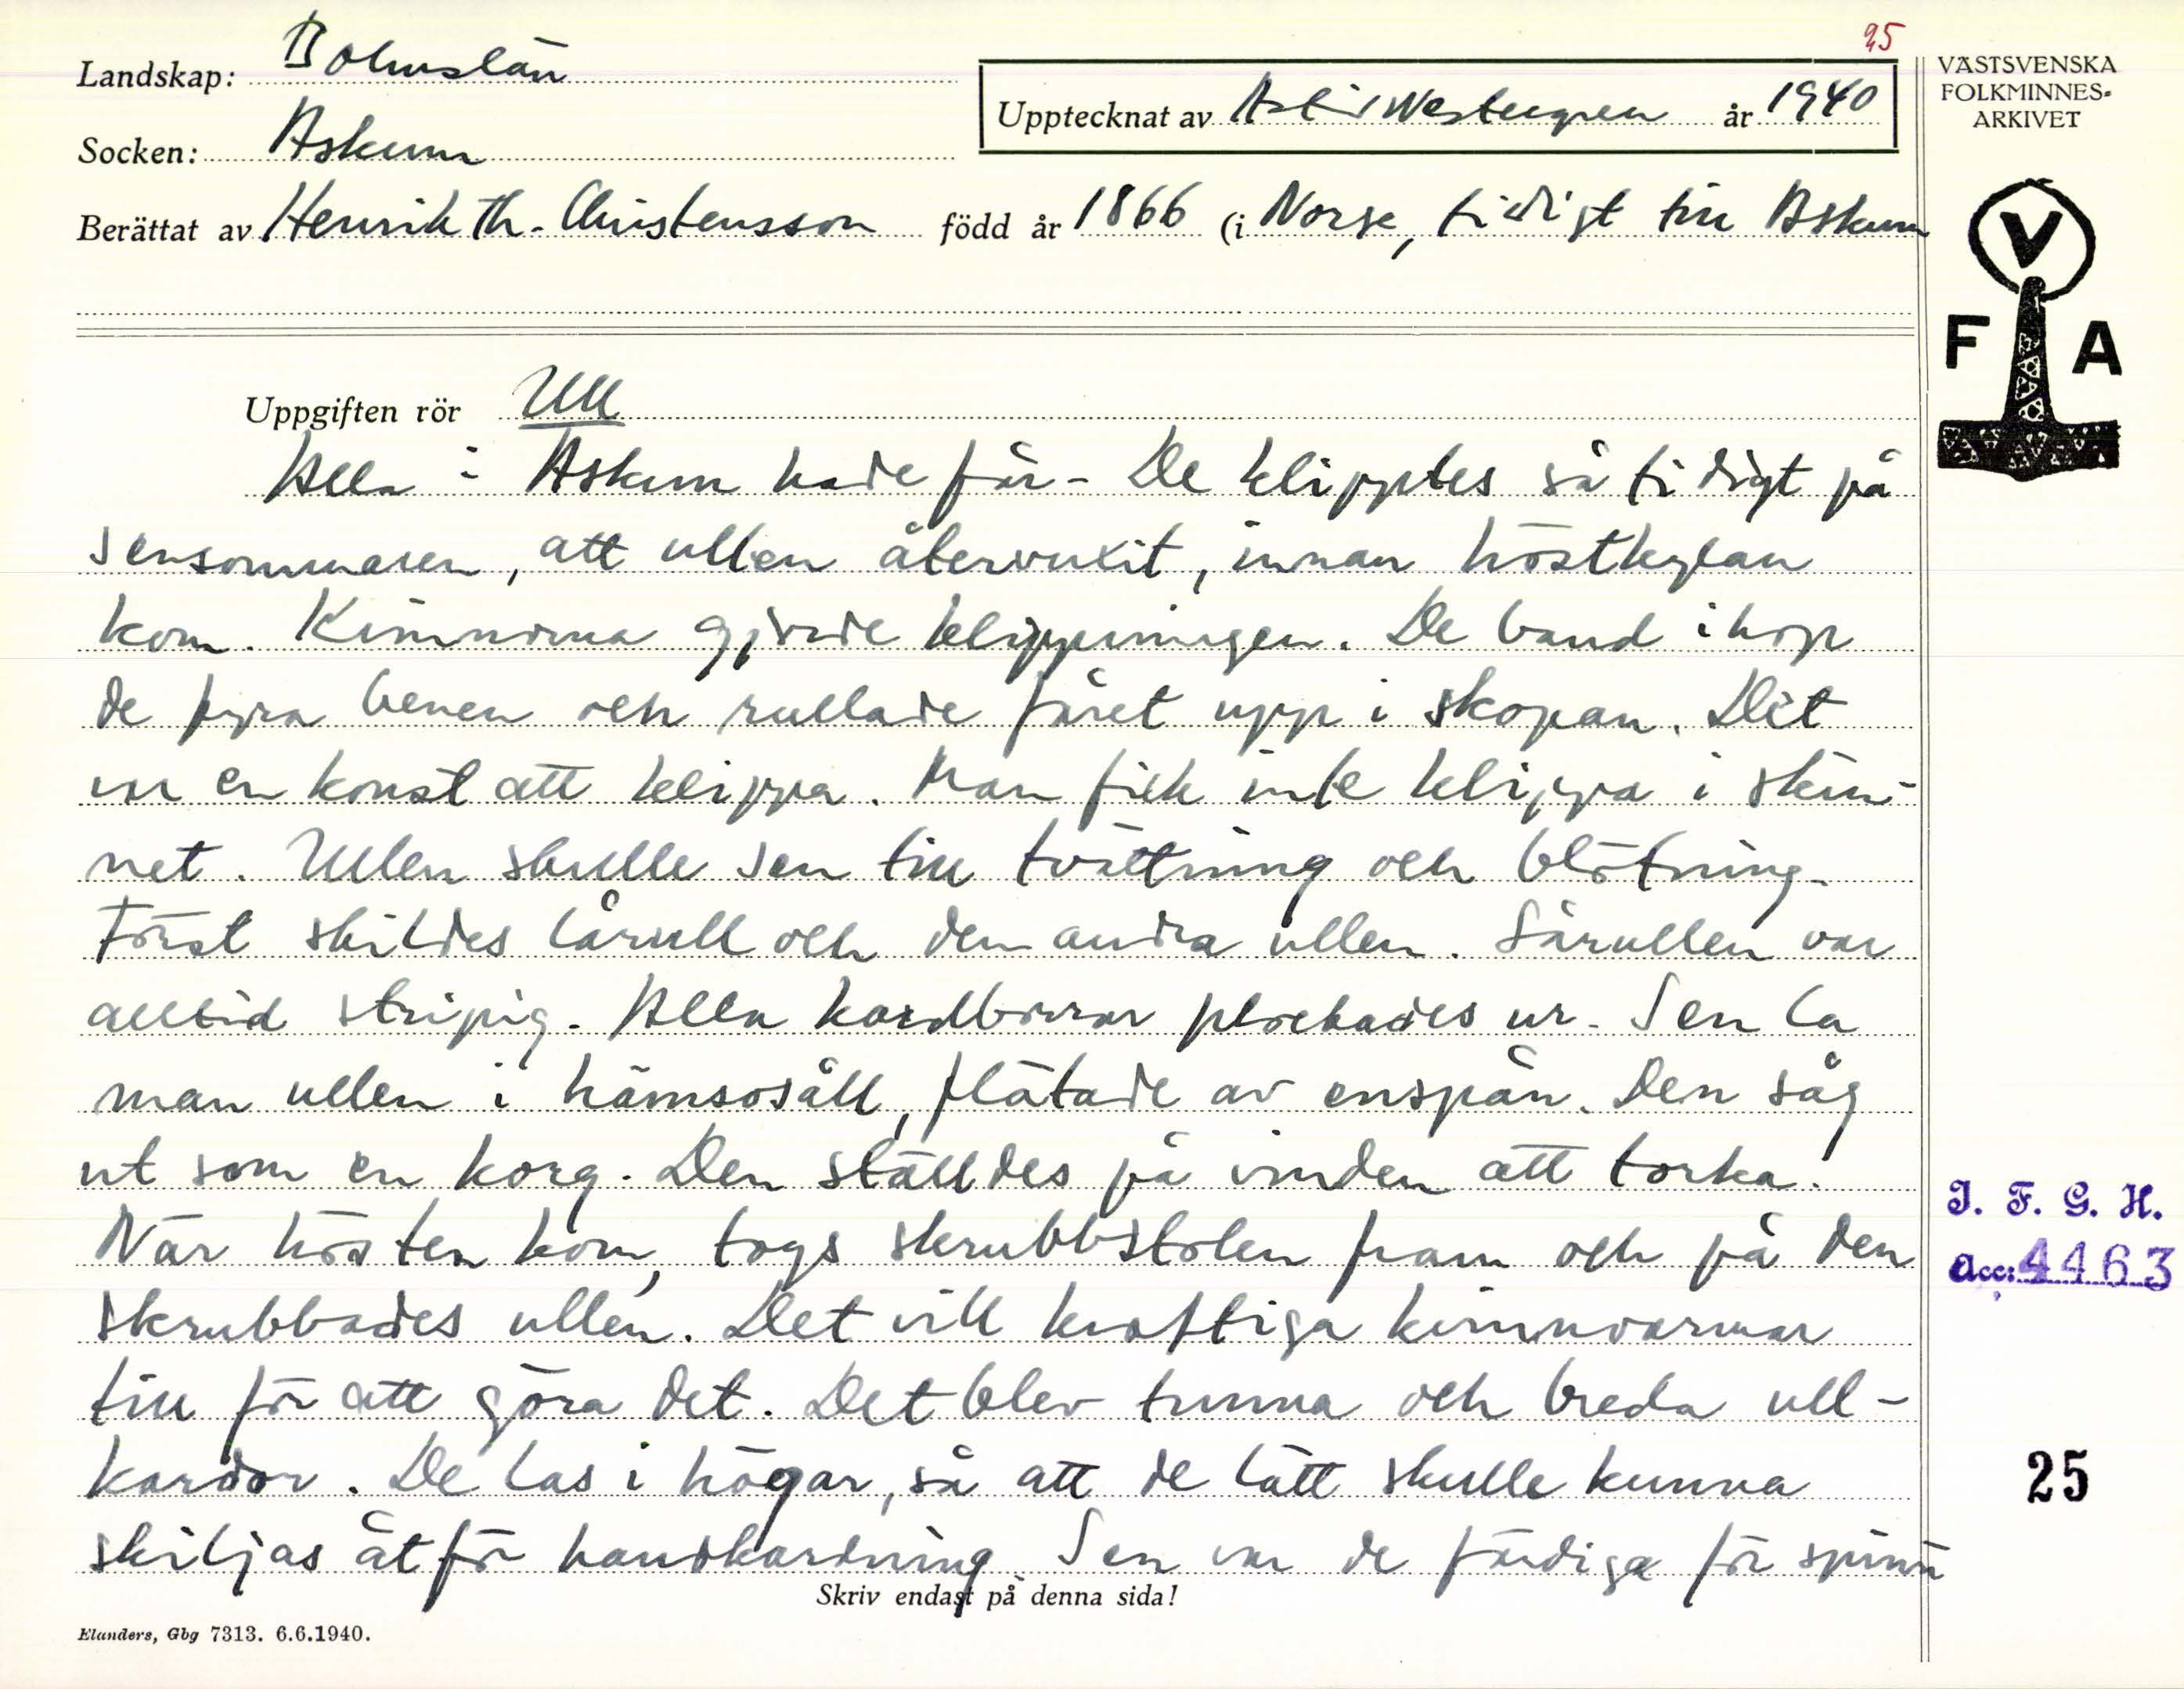 25
Landskap: Bohuslän
Upptecknat av Astrid Westergren år 1940
Socken: Askum
Berättat av Henrik Th. Christensson född år 1866 (i Norge, tidigt till Askum
VÄSTSVENSKA
FOLKMINNES-
ARKIVET
V
F A
Uppgiften rör Ull
Alla i Askum hade får. De klipptes så tidigt på
sensommaren, att ullen återvuxit, innan höstkylan
kom. Kvinnorna gjorde klippningen. De band ihop
de fyra benen och rullade fåret upp i skopan. Det
var en konst att klippa. Man fick inte klippa i skin-
net. Ullen skulle sen till tvättning och blötning.
Först skildes lårull och den andra ullen. Lårullen var
alltid stripig. Alla kardborrar plockades ur. Sen la
man ullen i hämsosåll, flätade av enspån. Den såg
ut som en korg. Den ställdes på vinden att torka.
När hösten kom, togs skrubbstolen fram och på den
skrubbades ullen. Det vill kraftiga kvinnoarmar
till för att göra det. Det blev tunna och breda ull-
kardor. De las i högar, så att de lätt skulle kunna
skiljas åt för handkardning. Sen var de färdiga för spinn
I. F. G. H.
Acc: 4463
25
Skriv endast på denna sida!
Elanders, Gbg 7313. 6.6.1940.